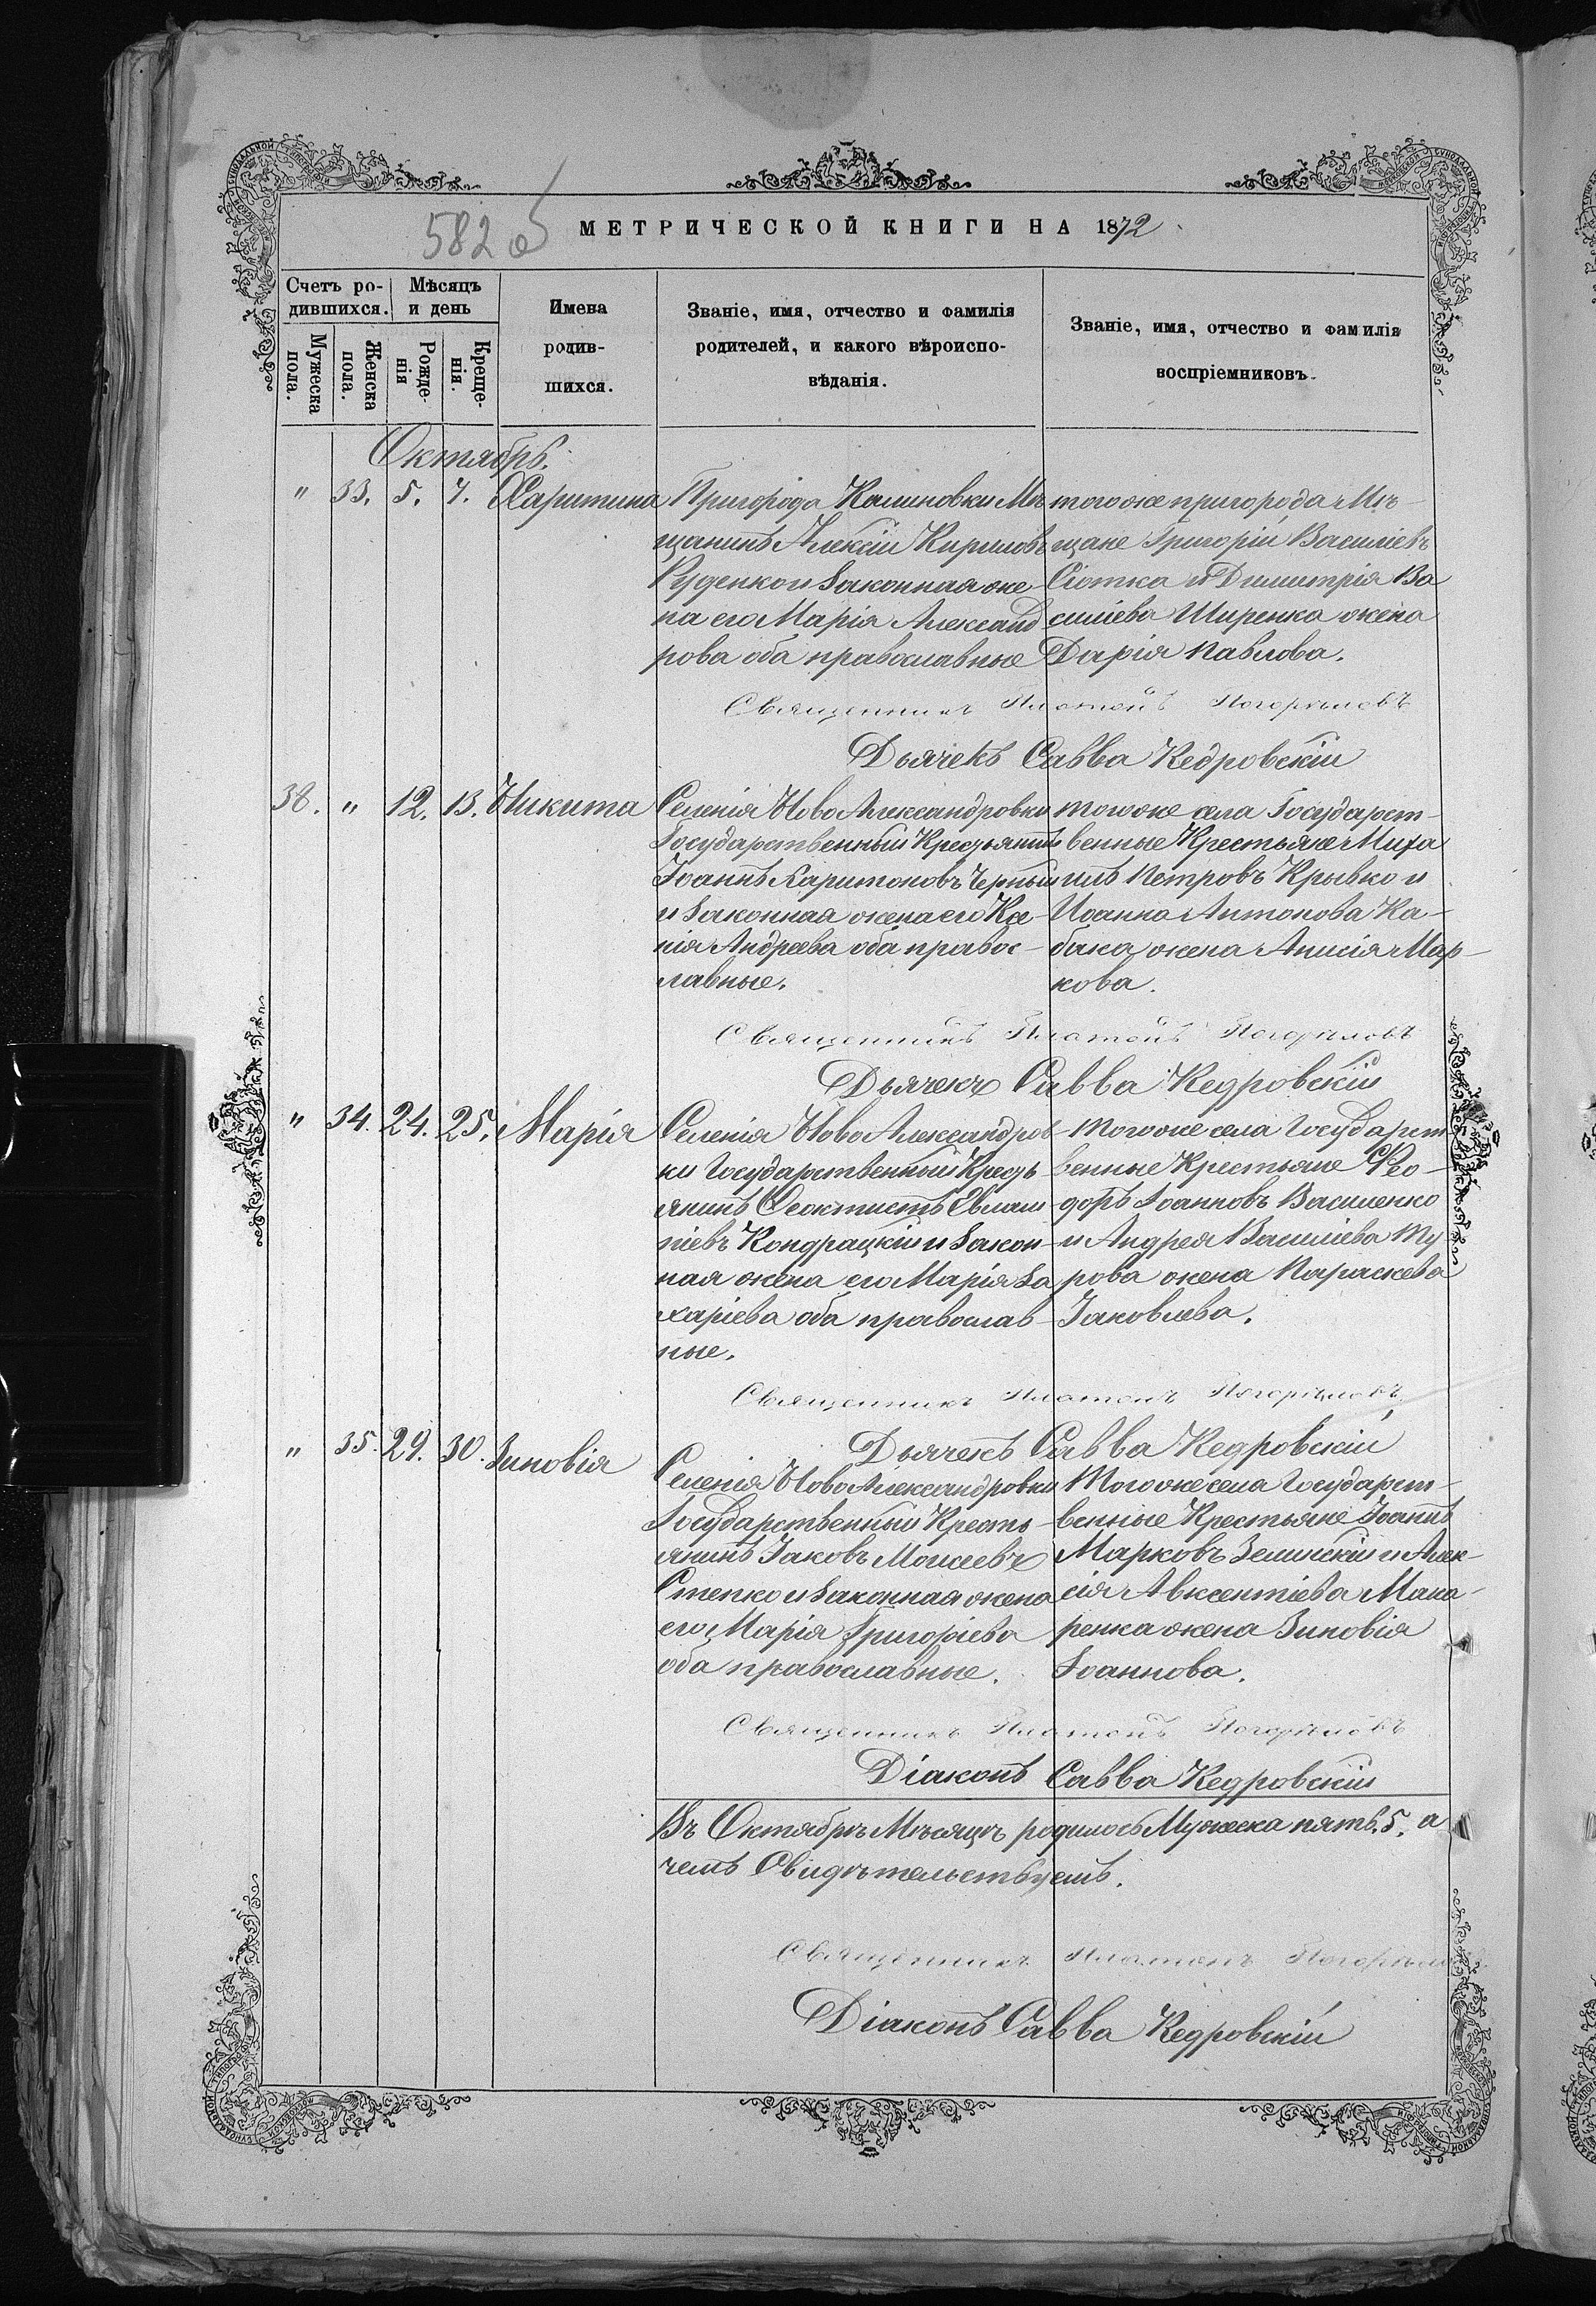 582 об
МЕТРИЧЕСКОЙ КНИГИ НА 1872
Счетъ ро-
дившихся.
Мѣсяцъ
и день
Мужеска
пола.
Женска
пола.
Рожде-
нія
Креще-
нія.
Имена
родив-
шихся.
Званіе, имя, отчество и фамилія
родителей, и какого вѣроиспо-
вѣданія.
Званіе, имя, отчество и фамилія
воспріемниковъ.
Октябрь.
" 33. 5. 7. Харитина
Пригорода Калиновки Мѣ
щанинъ Алексій Кириловъ
Руденко и Законная же-
на его Марія Александ
рова оба православные
того же пригорода Мѣ-
щане Григорій Василіевъ
Сіотка и Димитрія Ва
силіева Ширенка жена
Дарія Павлова.
Священникъ Платонъ Погорѣловъ
Дьячекъ Савва Кедровскій
38. " 12. 13. Никита
Селенія Ново Александровки
Государственный Крестьянинъ
Іоаннъ Харитоновъ Черный
и Законная жена его Ксе-
нія Андреева оба правос-
лавные.
того же села Государст-
венные Крестьяне Миха
илъ Петровъ Крывко и
Иоанна Антонова Ка-
бака жена Анисія Мар-
кова.
Священникъ Платонъ Погорѣловъ
Дьячекъ Савва Кедровскій
" 34. 24. 25. Марія
Селенія Ново Александров-
ки Государственный Кресть
янинъ Феоктистъ Евлам
піевъ Кондрацкій и Закон-
ная жена его Марія За
харіева оба православ-
ные.
того же села Государст
венные Крестьяне Фео-
доръ Іоанновъ Василенко
и Андрея Василіева Ту
рова жена Параскева
Іаковлева.
Священникъ Платонъ Погорѣловъ
Дьячекъ Савва Кедровскій
" 35. 29. 30. Зиновія
Селенія Ново Александровки
Государственный Кресть-
янинъ Іаковъ Моисеевъ
Степко и Законная жена
его Марія Григоріева
оба православные.
Того же села Государст-
венные Крестьяне Іоаннъ
Марковъ Зелинскій и Алек-
сія Авксентіева Мака-
ренка жена Зиновія
Іоаннова.
Священникъ Платонъ Погорѣловъ
Діаконъ Савва Кедровскій
Въ Октябрѣ Мѣсяцѣ родилось Мужеска пять. 5. а
чемъ Свидѣтельствуемъ.
Священникъ Платонъ Погорѣловъ
Діаконъ Савва Кедровскій